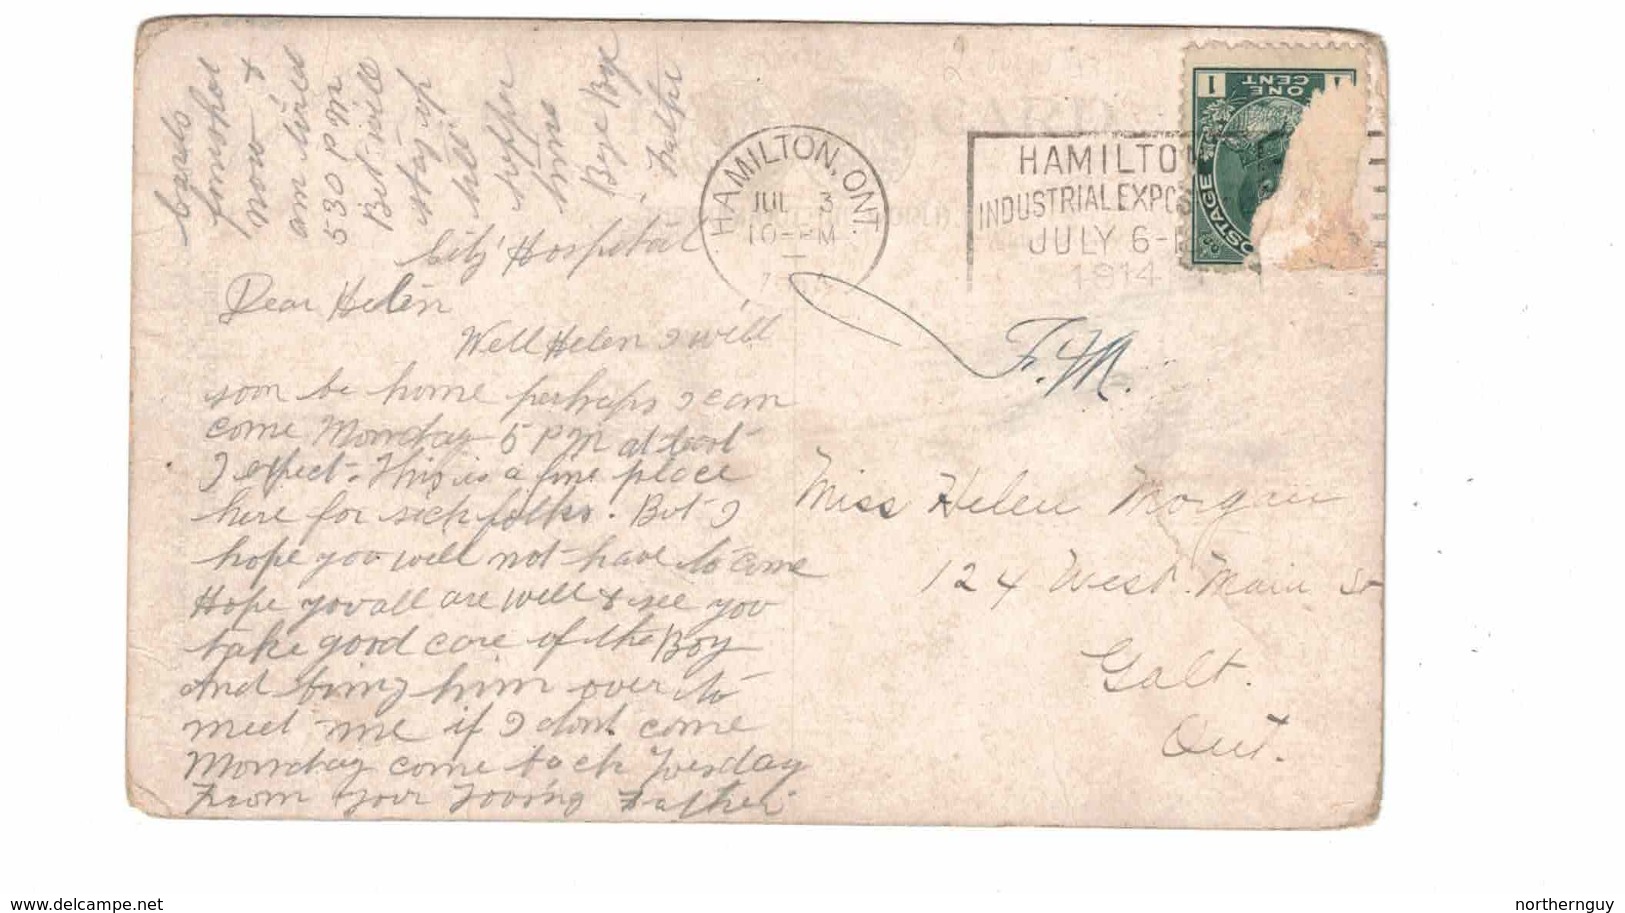 City Hospital
Dear Helen
Well Helen I will
soon be home perhaps I can
come Monday 5 PM at least
I expect. This is a fine place
here for sick folks. But I
hope you will not have to come
Hope you all are well & see you
take good care of the Boy
And bring him over to
meet me if I dont come
Monday come back Tuesday
From your Loving Father
cards
now &
am tired
530 PM
But will
stay up
till
supper
time
Bye Bye
HAMILTON, ONT.
JUL 3
10-PM
HAMILTO
INDUSTRIAL EXPOS
JULY 6-1
1914
1 ONE CENT 1
POSTAGE
F.M.
Miss Helen Morgan
124 West Main St
Galt.
Ont.
delcampe.net
northernguy